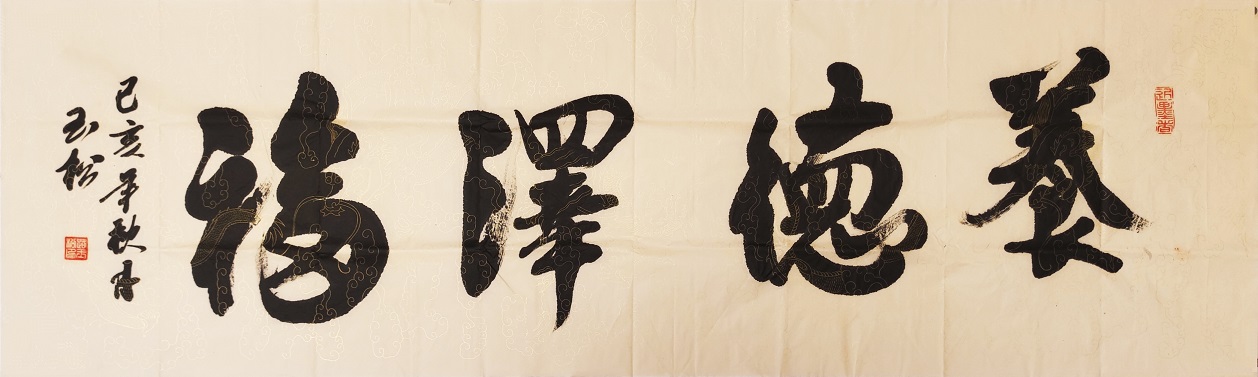 養德澤福
己亥年秋月
玉松